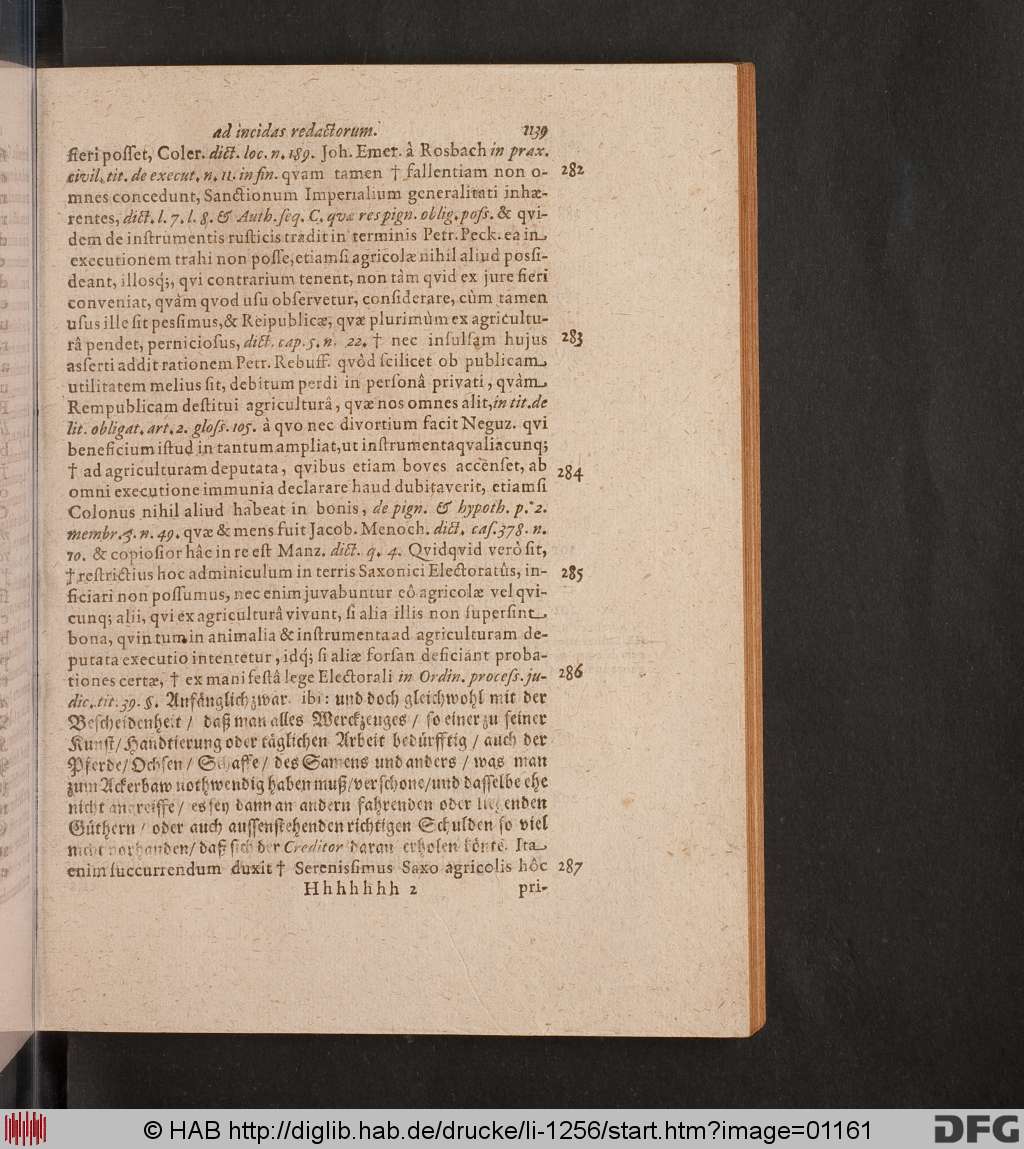 ad incidas redactorum. 1139
fieri posſet, Coler. dict. loc. n. 189. Joh. Emer. à Rosbach in prax.
civil. tit. de execut. n. 11. in fin. qvam tamen † fallentiam non o- 282
mnes concedunt, Sanctionum Imperialium generalitati inhæ-
rentes, dict. l. 7. l. 8. & Auth. ſeq. C. qvæ res pign. oblig. poſs. & qvi-
dem de inſtrumentis ruſticis tradit in terminis Petr. Peck. ea in
executionem trahi non poſſe, etiamſi agricolæ nihil aliud posſi-
deant, illosq;, qvi contrarium tenent, non tàm qvid ex jure fieri
conveniat, qvàm qvod uſu obſervetur, conſiderare, cùm tamen
uſus ille ſit pesſimus, & Reipublicæ, qvæ plurimùm ex agricultu-
râ pendet, pernicioſus, dict. cap. 5. n. 22. † nec inſulſam hujus 283
asſerti addit rationem Petr. Rebuff. qvòd ſcilicet ob publicam
utilitatem melius ſit, debitum perdi in perſonâ privati, qvàm
Rempublicam deſtitui agriculturâ, qvæ nos omnes alit, in tit. de
lit. obligat. art. 2. gloſs. 105. à qvo nec divortium facit Neguz. qvi
beneficium iſtud in tantum ampliat, ut inſtrumenta qvaliacunq;
† ad agriculturam deputata, qvibus etiam boves accenſet, ab 284
omni executione immunia declarare haud dubitaverit, etiamſi
Colonus nihil aliud habeat in bonis, de pign. & hypoth. p. 2.
membr. 5. n. 49. qvæ & mens fuit Jacob. Menoch. dict. caſ. 378. n.
10. & copioſior hâc in re eſt Manz. dict. q. 4. Qvidqvid verò ſit,
† reſtrictius hoc adminiculum in terris Saxonici Electoratûs, in- 285
ficiari non poſſumus, nec enim juvabuntur eô agricolæ vel qvi-
cunq; alii, qvi ex agriculturâ vivunt, ſi alia illis non ſuperſint
bona, qvin tum in animalia & inſtrumenta ad agriculturam de-
putata executio intentetur, idq; ſi aliæ forſan deficiant proba-
tiones certæ, † ex manifeſtâ lege Electorali in Ordin. proceſs. ju- 286
dic. tit. 39. §. Anfänglich zwar. ibi: und doch gleichwohl mit der
Beſcheidenheit / daß man alles Werckzeuges / ſo einer zu ſeiner
Kunſt / Handtierung oder täglichen Arbeit bedürfftig / auch der
Pferde / Ochſen / Schaffe / des Samens und anders / was man
zum Ackerbaw nothwendig haben muß / verſchone / und daſſelbe ehe
nicht angreiffe / es ſey dann an andern fahrenden oder liegenden
Güthern / oder auch auſſenſtehenden richtigen Schulden ſo viel
nicht vorhanden / daß ſich der Creditor daran erholen könte. Ita
enim ſuccurrendum duxit † Serenisſimus Saxo agricolis hôc 287
Hhhhhhh 2 pri-
© HAB http://diglib.hab.de/drucke/li-1256/start.htm?image=01161
DFG